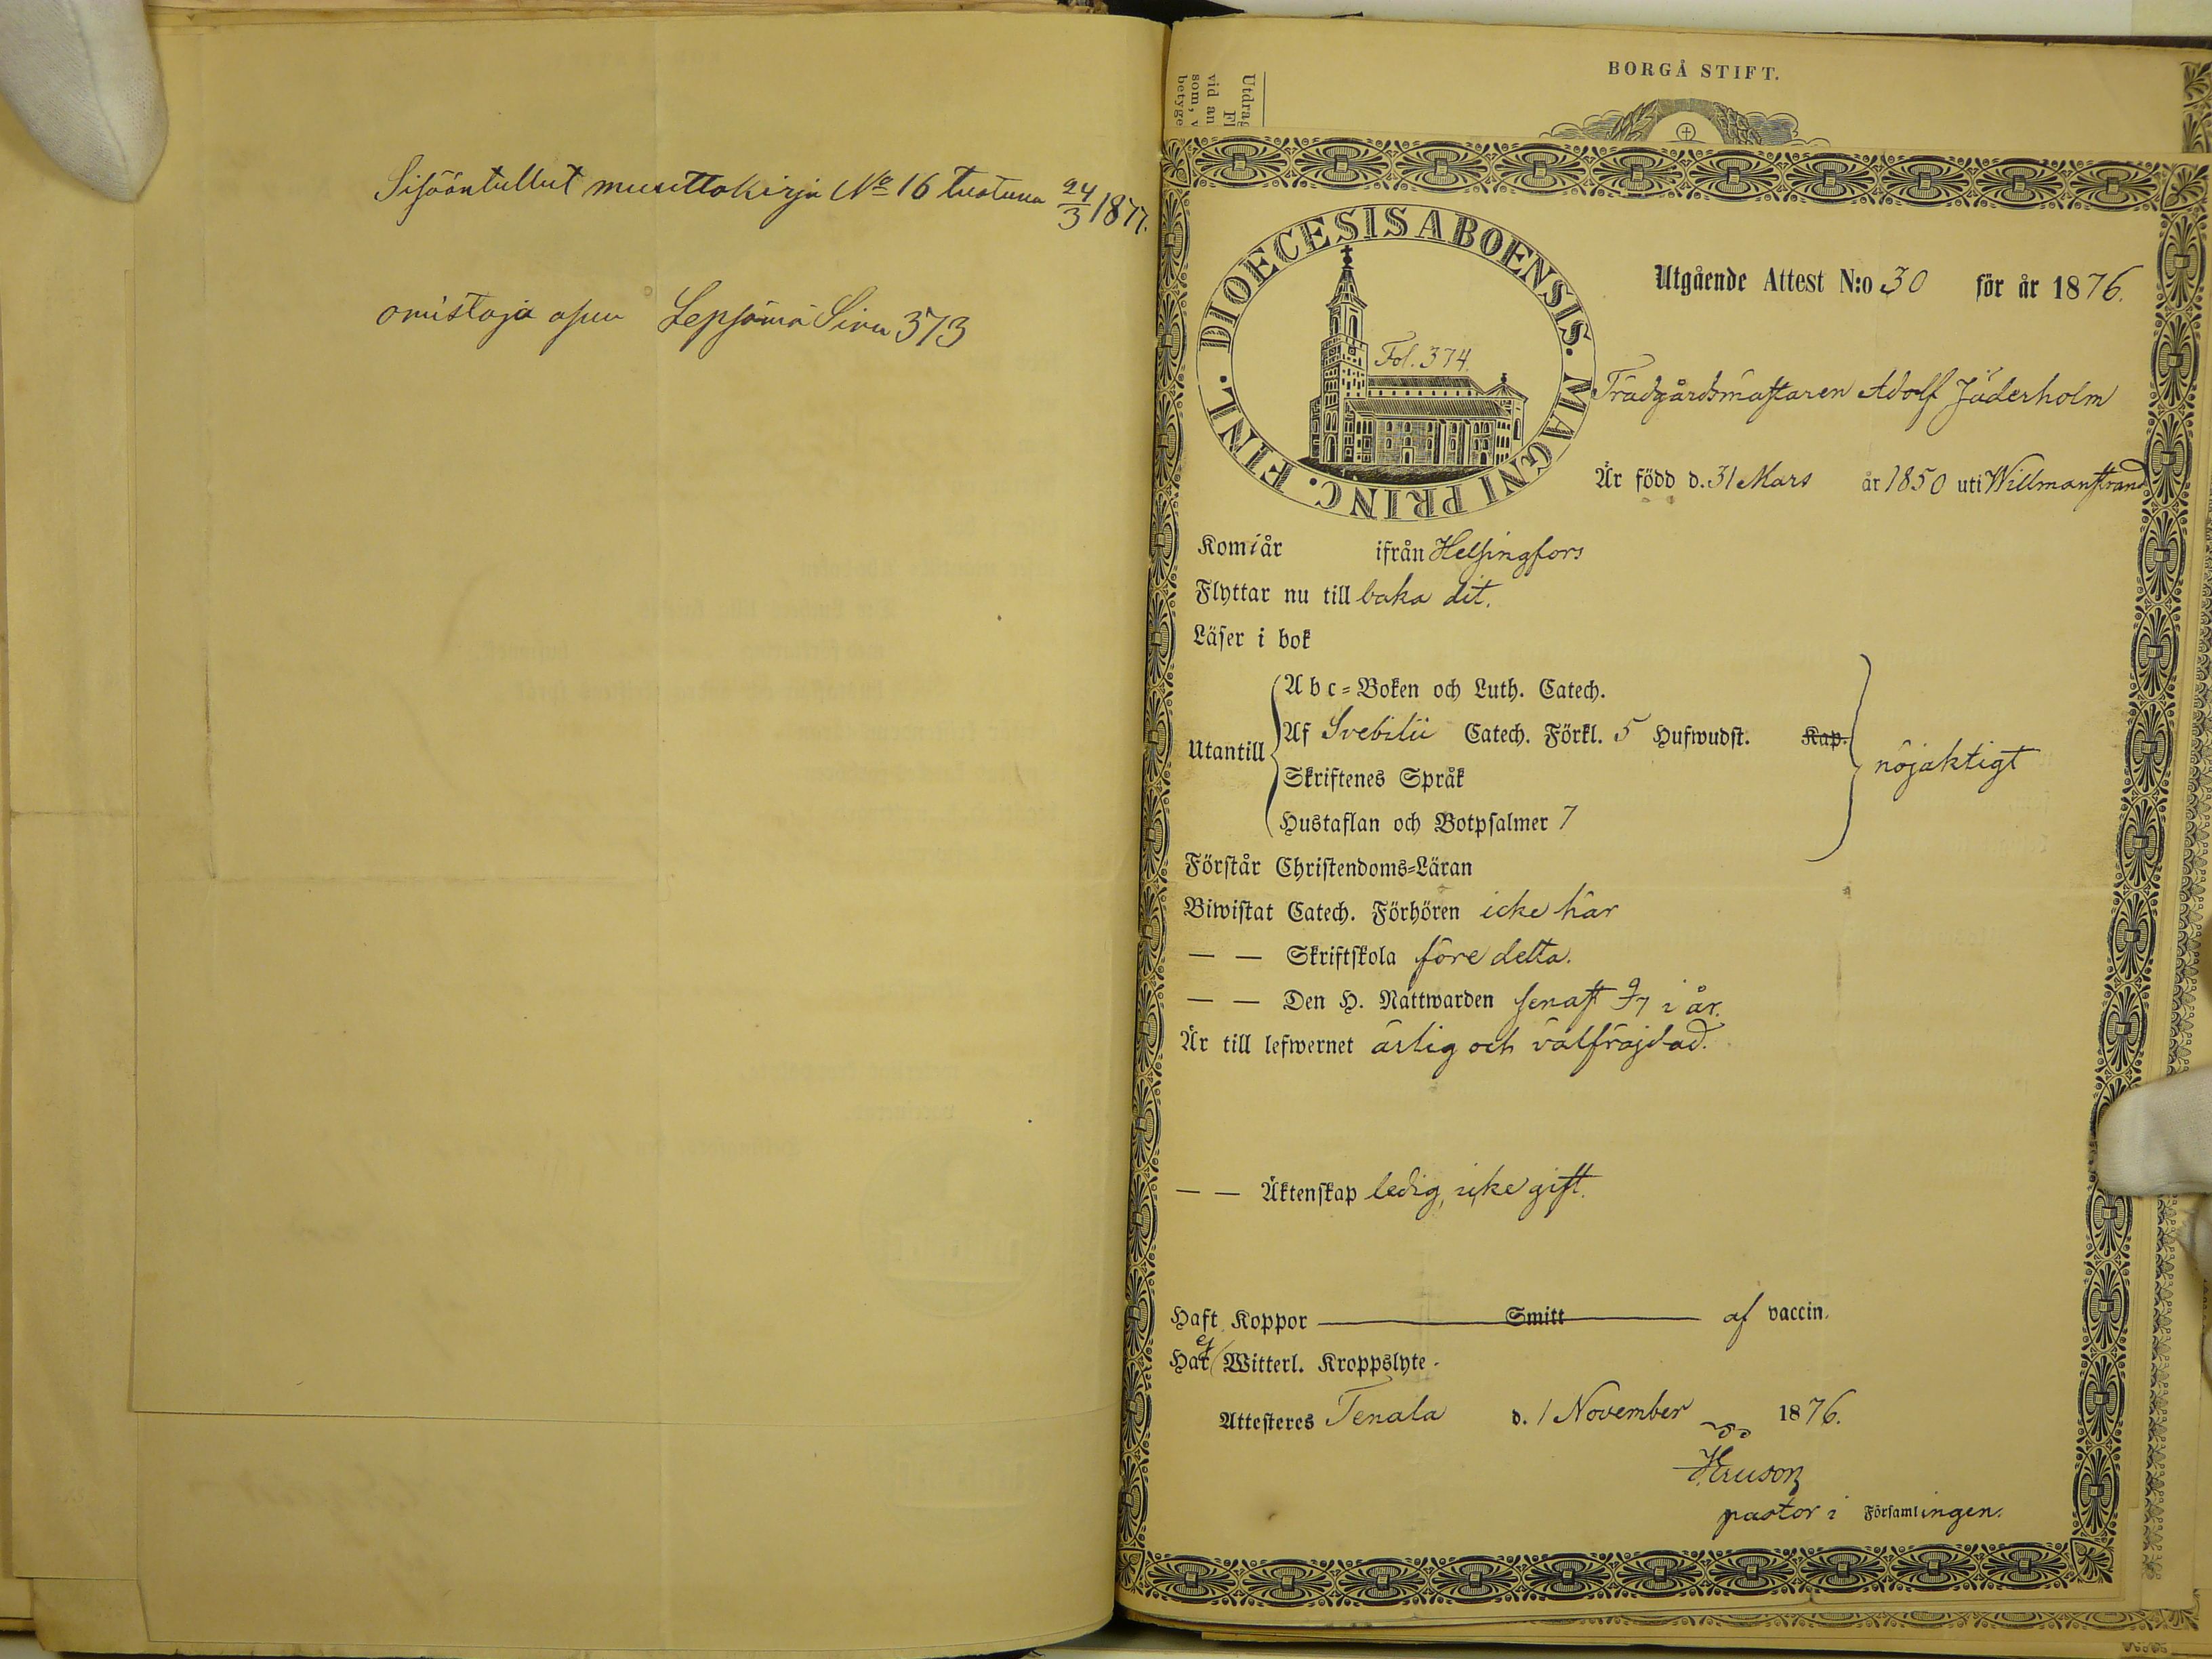 Sisääntullut muuttokirja No 16 tuotuna 24/3 1877.
omistaja asuu Lepsämä Sivu 373
Utdrag
Fl
vid an
som, v
betyge
BORGÅ STIFT.
DIOECESIS ABOENSIS. MAGNI PRINC. FINL.
Fol. 374.
Utgående Attest N:o 30 för år 1876.
Trädgårdsmästaren Adolf Jäderholm
Är född d. 31 Mars år 1850 uti Willmanstrand
Kom i år ifrån Helsingfors
Flyttar nu till baka dit.
Läser i bok
Utantill
Abc-Boken och Luth. Catech.
Af Svebilii Catech. Förkl. 5 Hufwudst. Kap.
Skriftenes Språk
Hustaflan och Botpsalmer 7
nöjaktigt
Förstår Christendoms-Läran
Biwistat Catech. Förhören icke här
— — Skriftskola före detta.
— — Den H. Nattwarden senast 9/7 i år.
Är till lefwernet ärlig och välfräjdad.
— — Äktenskap ledig, icke gift.
Haft Koppor Smitt af vaccin.
Har ej Witterl. Kroppslyte.
Attesteres Tenala d. 1 November 1876.
pastor i Församlingen.